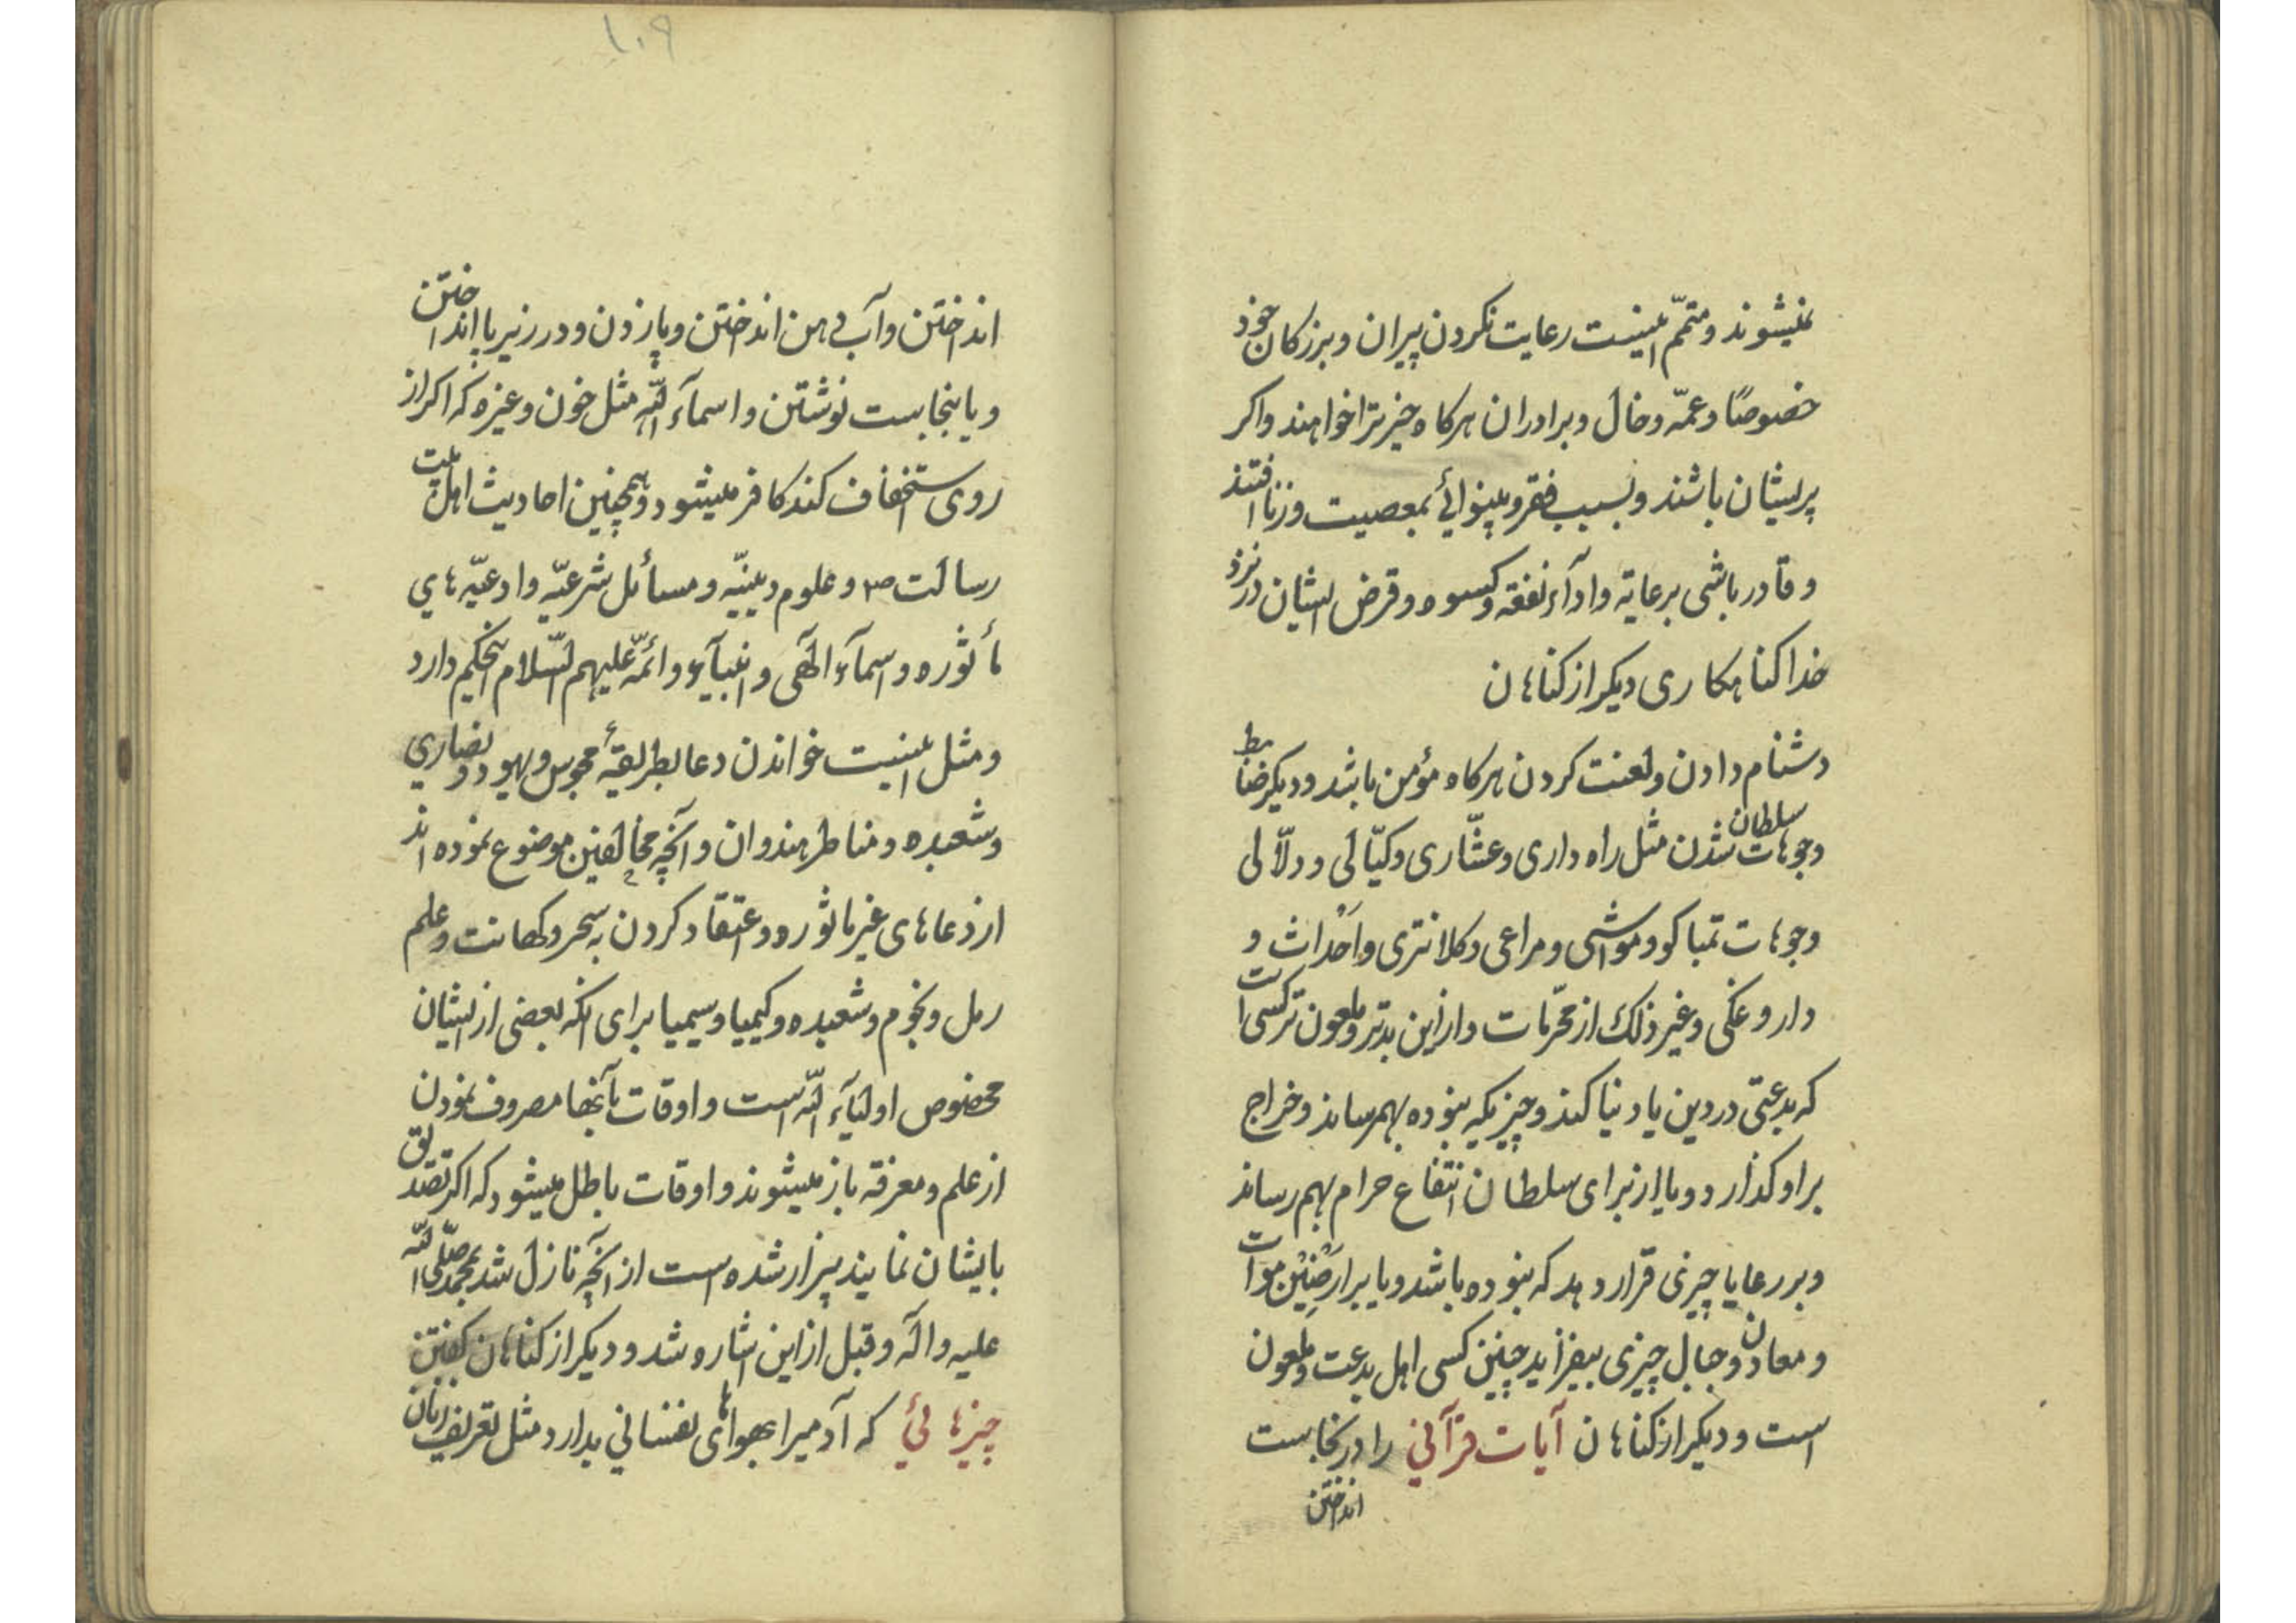 نمیشوند و متمّم اینست رعایت نکردن پیران و بزرکان خود
خصوصًا و عمّه و خال و برادران هرکاه چیز ترا خواهند و اکر
پریشان باشند و بسبب فقر و بینوائی بمعصیت و زنا افتند
و قادر باشی برعایة و ادآء نفقه و کسوه و قرض ایشان در نزد
خدا کناهکاری دیکر از کناهان
دشنام دادن و لعنت کردن هرکاه مؤمن باشد و دیکر ضابط
وجوهات سلطان شدن مثل راه داری و عشّاری و کیّالی و دلّالی
وجوهات تمباکو و مواشی و مراعی و کلانتری و احداث و
داروغکی و غیر ذلک از محرّمات و از این بدتر و ملعون تر کسی است
که بدعتی در دین یا دنیا کند و چیزیکه نبوده بهمرساند و خراج
بر او کذارد و یا از برای سلطان انتفاع حرام بهم رساند
و بر رعایا چیزی قرار دهد که نبوده باشد و یا بر ارضین موات
و معادن و جبال چیزی بیفزاید چنین کسی اهل بدعت و ملعون
است و دیکر از کناهان آیات قرآنی را در نجاست
انداختن
۱۰۹
انداختن و آب دهن انداختن و پا زدن و در زیر پا انداختن
و یا بنجاست نوشتن و اسمآء اللّه مثل خون و غیره که اکر از
روی استخفاف کند کافر میشود و همچنین احادیث اهل بیت
رسالت ص و علوم دینیّه و مسائل شرعیّه و ادعیّه های
مأثوره و اسمآء الهی و انبیآء و ائمّه علیهم السّلام این حکم دارد
و مثل اینست خواندن دعا بطریقهٔ مجوس و یهود و نصاری
و شعبده و مناطر هندوان و آنچه مخالفین موضوع نموده اند
از دعاهای غیر ماثوره و اعتقاد کردن به سحر و کهانت و علم
رمل و نجوم و شعبده و کیمیا و سیمیا برای آنکه بعضی از ایشان
مخصوص اولیآء اللّه است و اوقات بآنها مصروف نمودن
از علم و معرفة باز میشوند و اوقات باطل میشود که اکر تصدیق
بایشان نمایند بیزار شده است از آنچه نازل شد بمحمد صلّی اللّه
علیه و آله و قبل از این اشاره شد و دیکر از کناهان کفتن
چیزهائی که آدمیرا بهواهای نفسانی بدارد مثل تعریف زنان